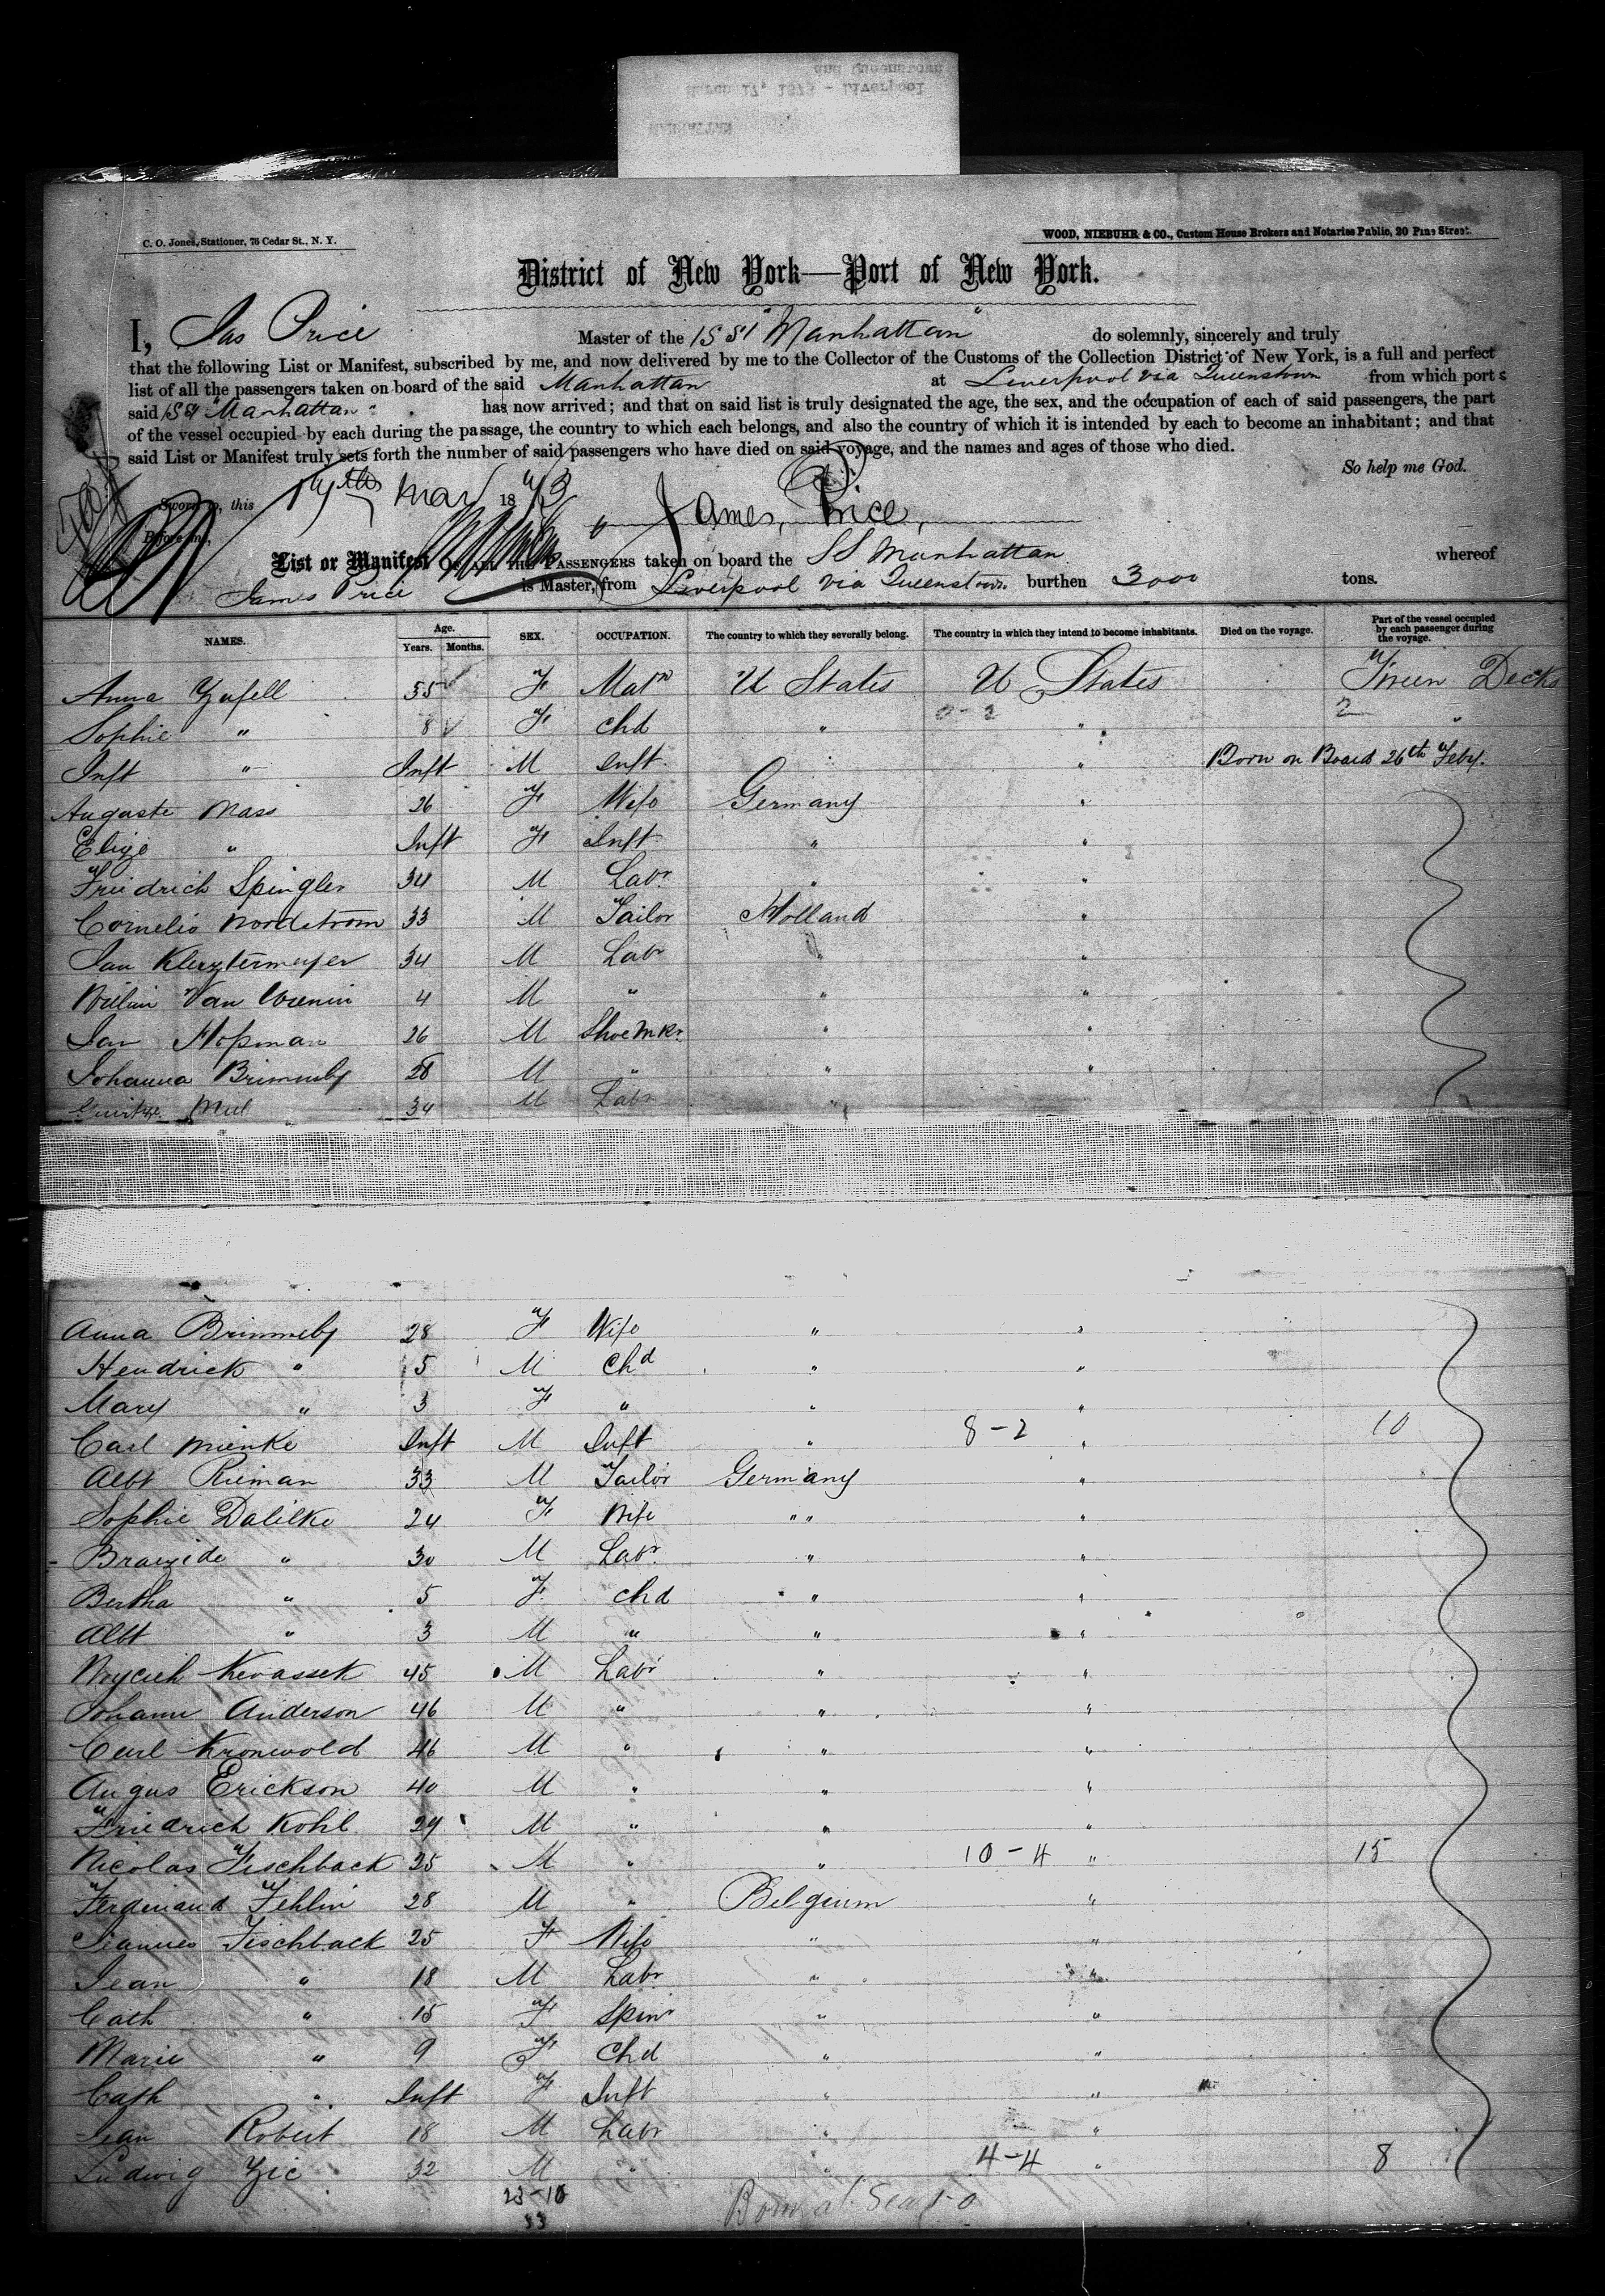 and Queenstown
March 17, 1873 - Liverpool
MANHATTAN
C. O. Jones, Stationer, 76 Cedar St., N. Y.
WOOD, NIEBUHR & CO., Custom House Brokers and Notaries Public, 20 Pine Street.
District of New York—Port of New York.
I, Jas Price Master of the "Manhattan" do solemnly, sincerely and truly
that the following List or Manifest, subscribed by me, and now delivered by me to the Collector of the Customs of the Collection District of New York, is a full and perfect
list of all the passengers taken on board of the said Manhattan at Liverpool via Queenstown from which port s
said SS "Manhattan" has now arrived; and that on said list is truly designated the age, the sex, and the occupation of each of said passengers, the part
of the vessel occupied by each during the passage, the country to which each belongs, and also the country of which it is intended by each to become an inhabitant; and that
said List or Manifest truly sets forth the number of said passengers who have died on said voyage, and the names and ages of those who died.
So help me God.
Sworn to, this 17th Mar 1873
James Price
Before me,
List or Manifest OF ALL THE PASSENGERS taken on board the SS Manhattan whereof
James Price is Master, from Liverpool via Queenstown burthen 3000 tons.
NAMES. Age. Years. Months. SEX. OCCUPATION. The country to which they severally belong. The country in which they intend to become inhabitants. Died on the voyage. Part of the vessel occupied by each passenger during the voyage.
Anna 55 F Matn U States U States Tween Decks
Sophie " 8 F chd " 0-2 " 2 "
Inft " Inft M Inft " " Born on Board 26th Feby.
Auguste Mass 26 F Wife Germany "
Elize " Inft F Inft " "
Friedrich Spingler 34 M Labr " "
Cornelis Nordstrom 33 M Tailor Holland "
Jan Kleuztermeyer 34 M Labr " "
Van 4 M " " "
Jan Hopman 26 M ShoeMkr " "
Johanna Brimmeby 28 M " " "
Mul 34 M Labr "
Anna Brimmeby 28 F Wife " "
Hendrick " 5 M Chd " "
Mary " 3 F " " "
Carl Mienke Inft M Inft " 8-2 " 10
Albt Rieman 33 M Tailor Germany "
Sophie Dalilke 24 F Wife " " "
" 30 M Labr " "
Bertha " 5 F chd " "
Albt " 3 M " " "
45 M Labr " "
Johann Anderson 46 M " " "
Carl Kronwold 46 M " " "
Angus Erickson 40 M " " "
Friedrich Kohl 29 M " " "
Nicolas Fischback 25 M " " 10-4 " 15
Ferdinand Fehlin 28 M " Belgium "
Fischback 25 F Wife " "
Jean " 18 M Labr " "
Cath " 15 F Spinr " "
Marie " 9 F Chd " "
Cath " Inft F Inft " "
Jean Robert 18 M Labr " "
Ludwig Zic 32 M " " 4-4 " 8
23-10
33
Born at Sea 1-0